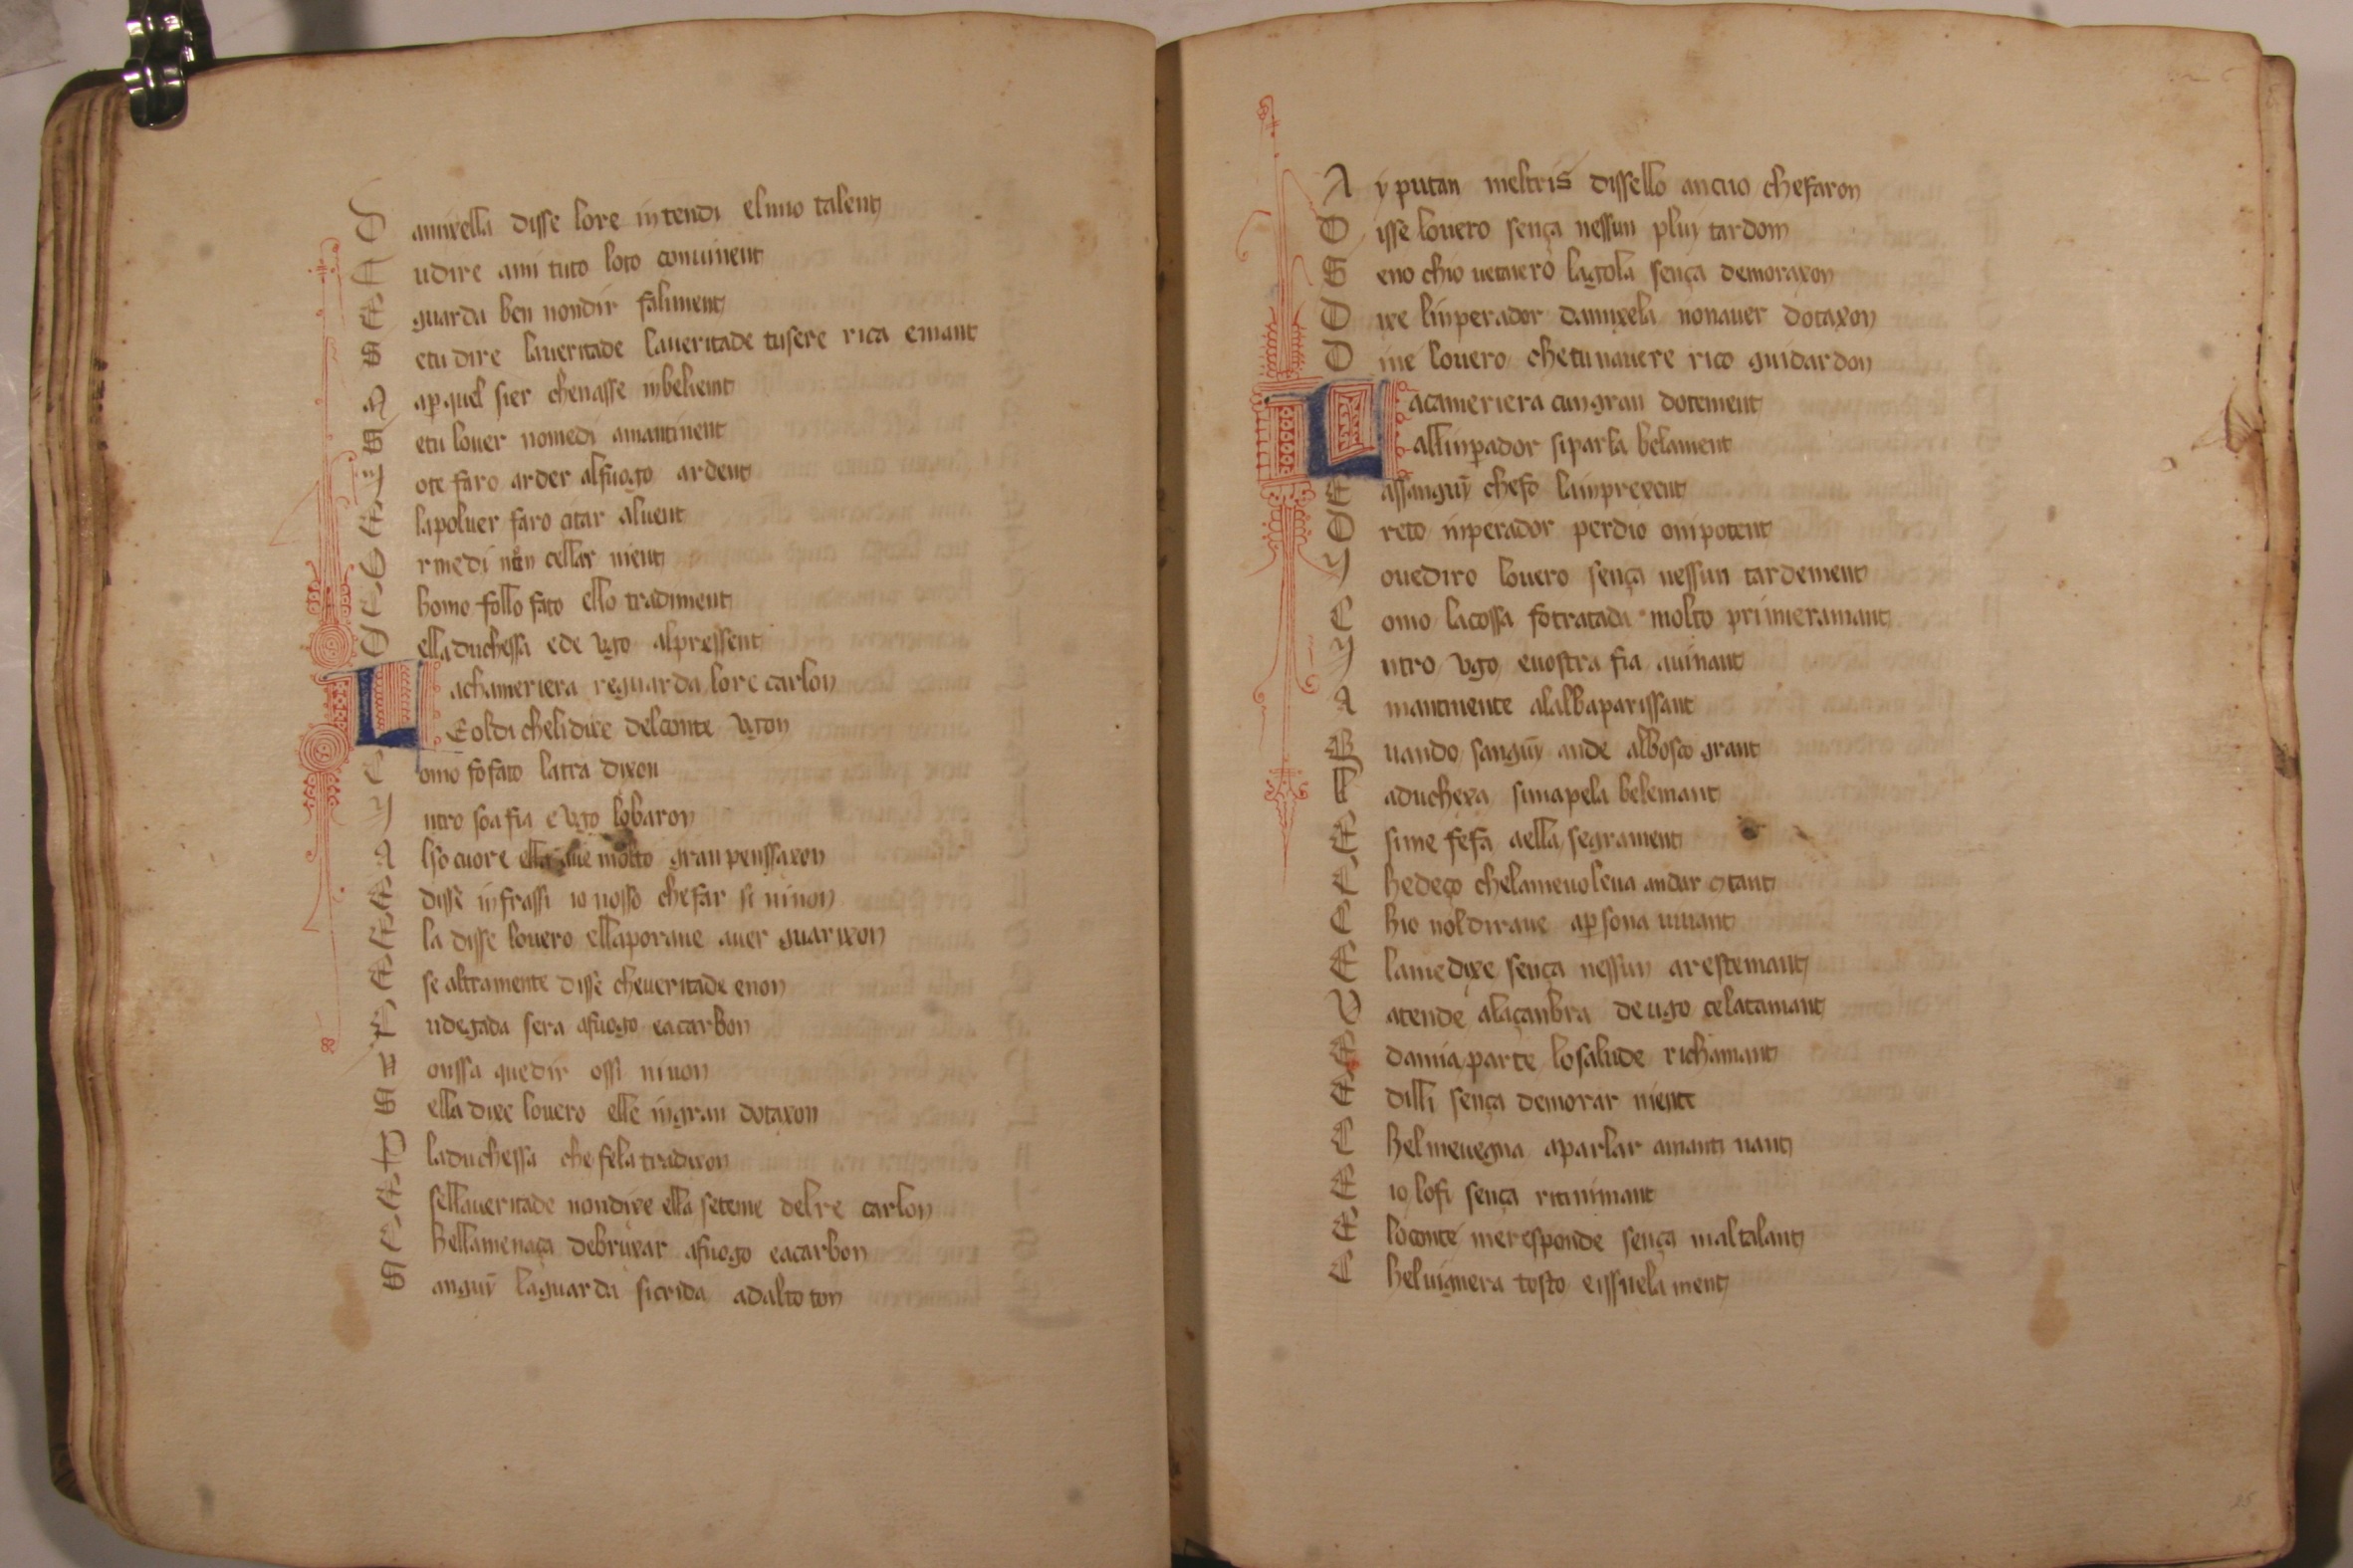 D amixella disse lore intendi elmio talent
A udire ami tuto loto convinent
E guarda ben nondir faliment
S etu dire laveritade laveritade tusere rica emant
A ap quel sier chenasse inbelient
S etu lover nomedi amantinent
Y ote faro arder alfuogo ardent
E lapolver faro citar alvent
O r medi non cellar nient
C homo follo fato ello tradiment
D ella duchessa ede ugo alpressent
L achameriera reguarda lore carlon
E oldi chelidixe delconte ugon
C omo fofato latradixon
Y ntro soa fia e ugo lobaron
A lso cuore ella ave molto gran penssaxon
E disse infrassi io nosso chefar si ninon
E la disse lovero ella porave aver guarixon
E se altramente disse cheveritade enon
C udegada sera afuogo eacarbon
N onssa quedir ossi ninon
S ella dixe lovero elle ingran dotaxon
P laduchessa che fela tradixon
E sellaveritade nondixe ella seteme delre carlon
C hellamenaça debruxar afuogo eacarbon
S anguin laguarda sicrida adalto ton
A y putan meltris dissello ancuo chefaron
D isse lovero sença nessun pluy tardom
S eno chio vetaiero lagola sença demoraxon
D ixe linperador damixela nonaver dotaxon
D ime lovero chetunavere rico guidardon
L acameriera cungran dotement
allinpador siparla belament
E assanguin chefo lainprexent
D reto inperador perdio onipotent
Y ovediro lovero sença nessun tardement
C omo lacossa fotratada molto primieramant
Y ntro ugo evostra fia avinant
A mantinente alalbaparissant
Q uando sanguin ande albosco grant
L aduchexa simapela belemant
E sime fefa aella segrament
C hedeço chelamevoleva andar 9tant
C hio noldirave ap sona vivant
E lamedixe sença nessun arestemant
V atende alaçanbra deugo celatamant
E damia parte losalude richamant
E dilli sença demorar niente
C helmevegna aparlar amanti nant
E io lofi sença ritinimant
E loconte meresponde sença maltalant
C helvignera tosto eissnela ment